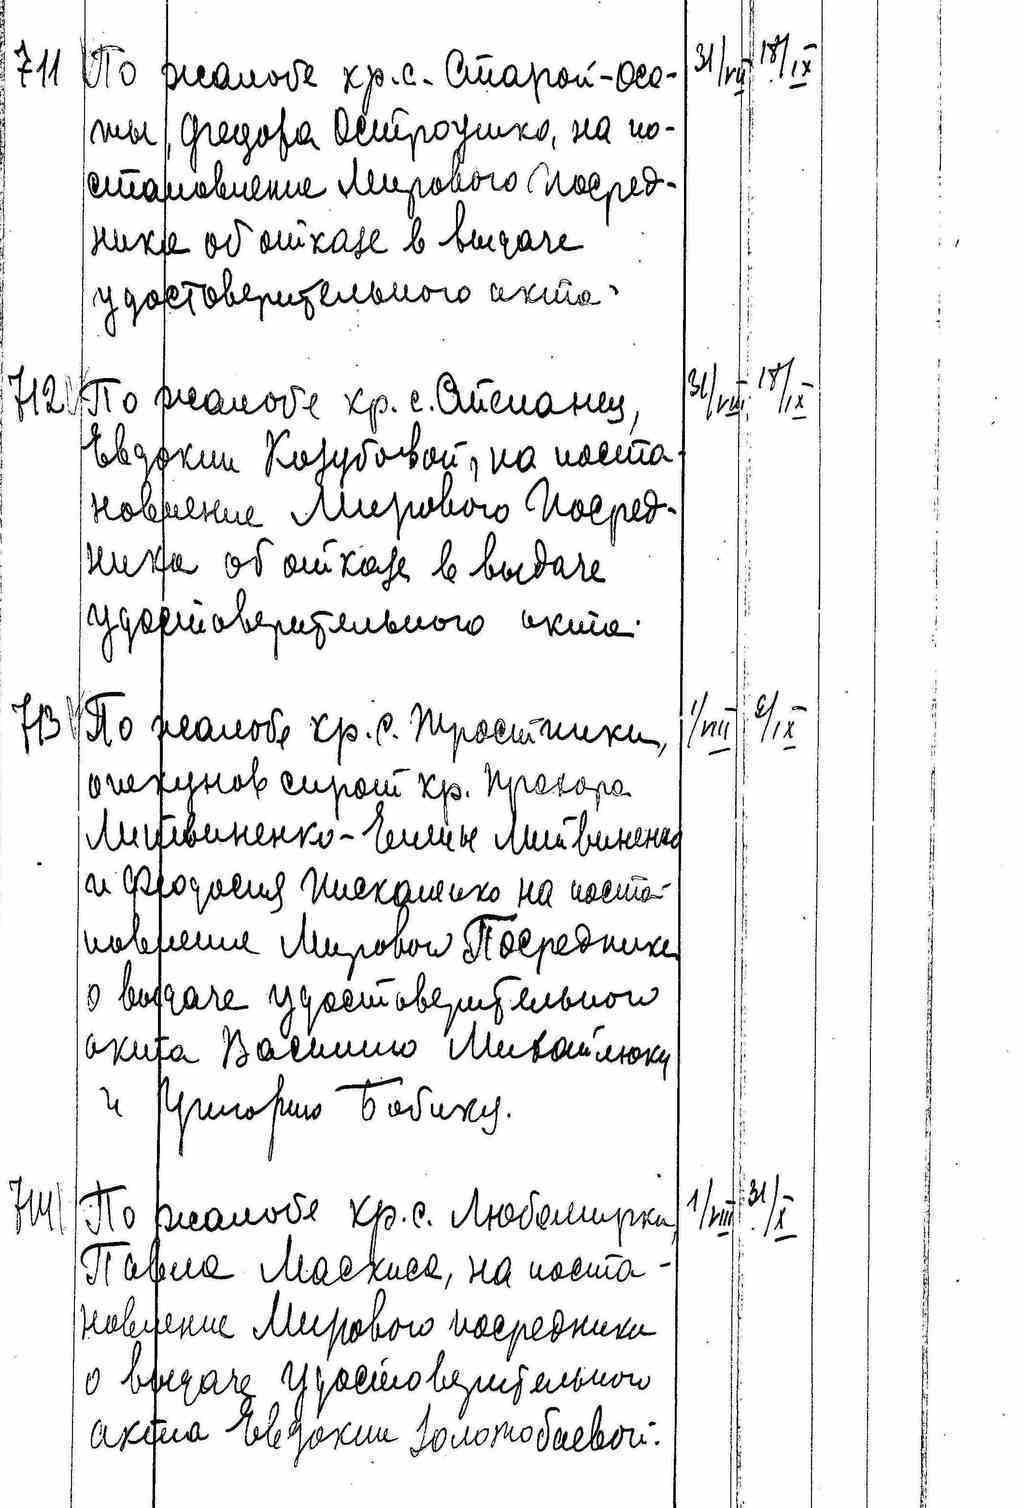 711 По жалобе кр. с. Старой-Осо- 31/VII 18/IX
ты, Федора Остроушко, на по-
становление Мирового Посред-
ника об отказе в выдаче
удостоверительного акта.
712 По жалобе кр. с. Степанец, 31/VIII 18/IX
Евдокии Козубовой, на поста-
новление Мирового Посред-
ника об отказе в выдаче
удостоверительного акта.
713 По жалобе кр. с. Тростинки, 1/VIII /IX
опекунов сирот кр. Прохора
Литвиненко - Елены Литвиненко
и Феодосия на поста-
новление Мирового Посредника
о выдаче удостоверительного
акта Василию Михайлюку
и Григорию Бобику.
714 По жалобе кр. с. Любомирки, 1/VIII 31/X
Павла на поста-
новление Мирового посредника
о выдаче удостоверительного
акта Евдокии